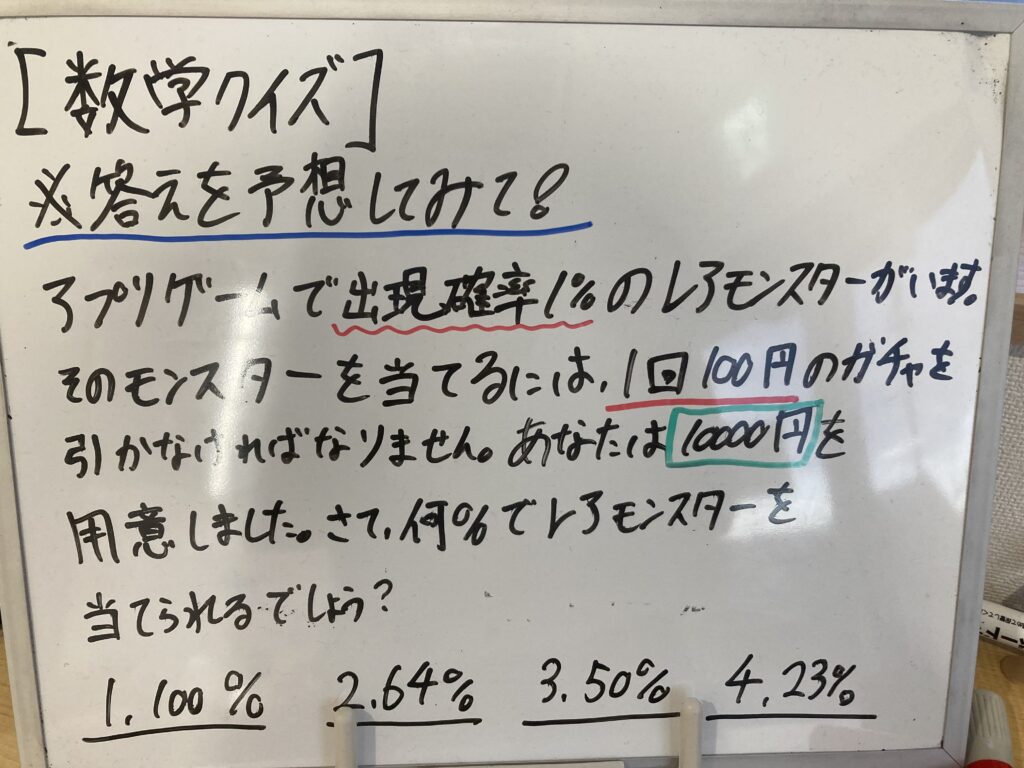 [数学クイズ]
※答えを予想してみて!
アプリゲームで出現確率1%のレアモンスターがいます。
そのモンスターを当てるには、1回100円のガチャを
引かなければなりません。あなたは10000円を
用意しました。さて、何%でレアモンスターを
当てられるでしょう?
1.100% 2.64% 3.50% 4.23%